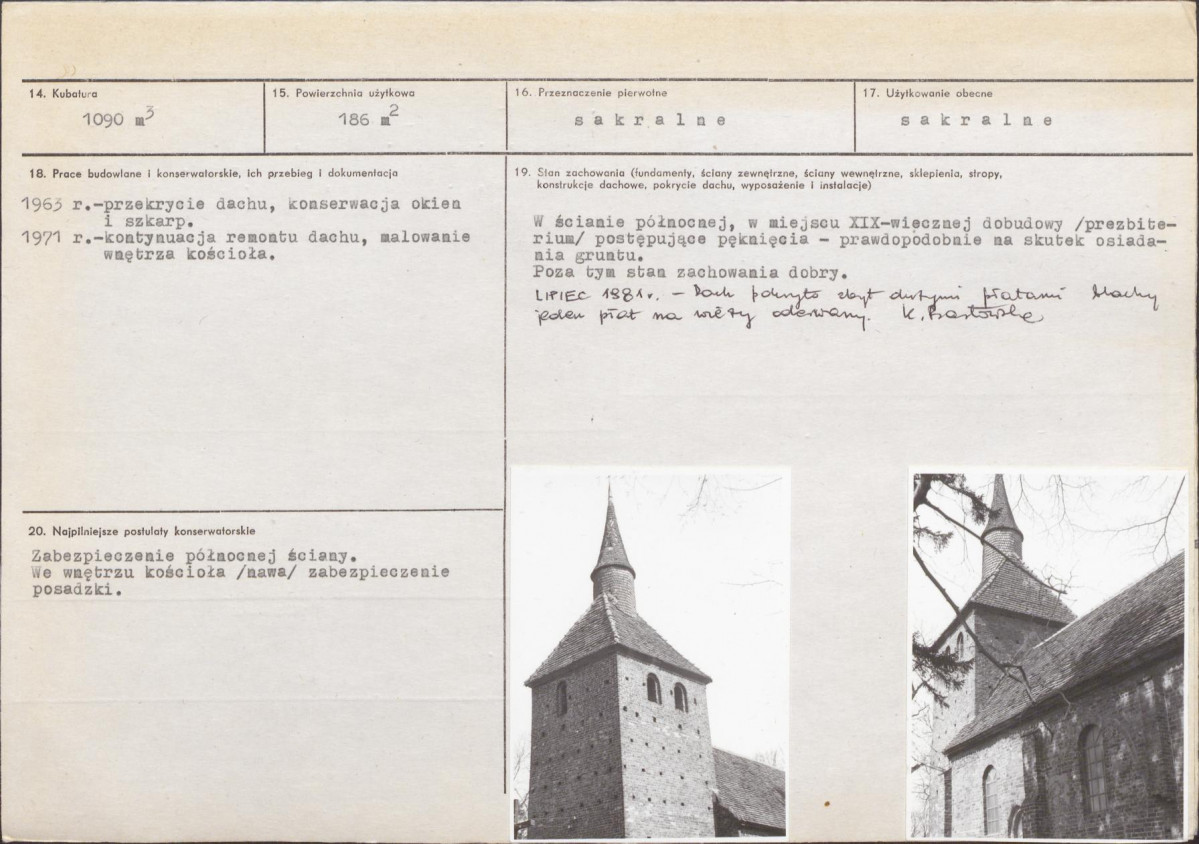 14. Kubatura
1090 m3
15. Powierzchnia użytkowa
186 m2
16. Przeznaczenie pierwotne
sakralne
17. Użytkowanie obecne
sakralne
18. Prace budowlane i konserwatorskie, ich przebieg i dokumentacja
1963 r.-przekrycie dachu, konserwacja okien
i szkarp.
1971 r.-kontynuacja remontu dachu, malowanie
wnętrza kościoła.
19. Stan zachowania (fundamenty, ściany zewnętrzne, ściany wewnętrzne, sklepienia, stropy,
konstrukcje dachowe, pokrycie dachu, wyposażenie i instalacje)
W ścianie północnej, w miejscu XIX-wiecznej dobudowy /prezbite-
rium/ postępujące pęknięcia - prawdopodobnie na skutek osiada-
nia gruntu.
Poza tym stan zachowania dobry.
LIPIEC 1981 r. - Dach pokryto zbyt dużymi płatami blachy
jeden płat na wieży oderwany. K.
20. Najpilniejsze postulaty konserwatorskie
Zabezpieczenie północnej ściany.
We wnętrzu kościoła /nawa/ zabezpieczenie
posadzki.